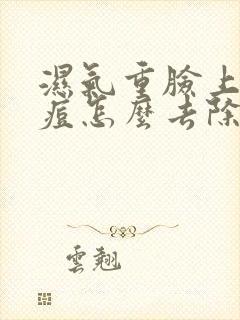 濕氣重臉上
痘怎麼去除
雲翹